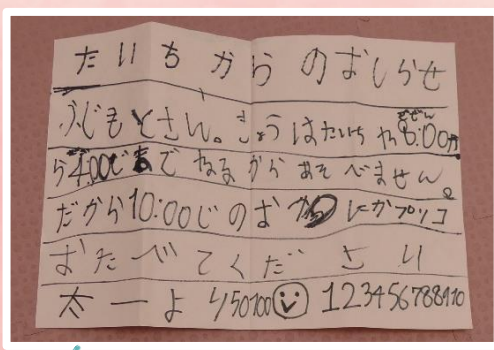 たいちからのおしらせ
ふじもとさん。きょうはたいちや6:00か
ら4:00じまでねるからあそべません。
だから10:00じのおにかプリコ
おたべてください
太一より50100 123456788910